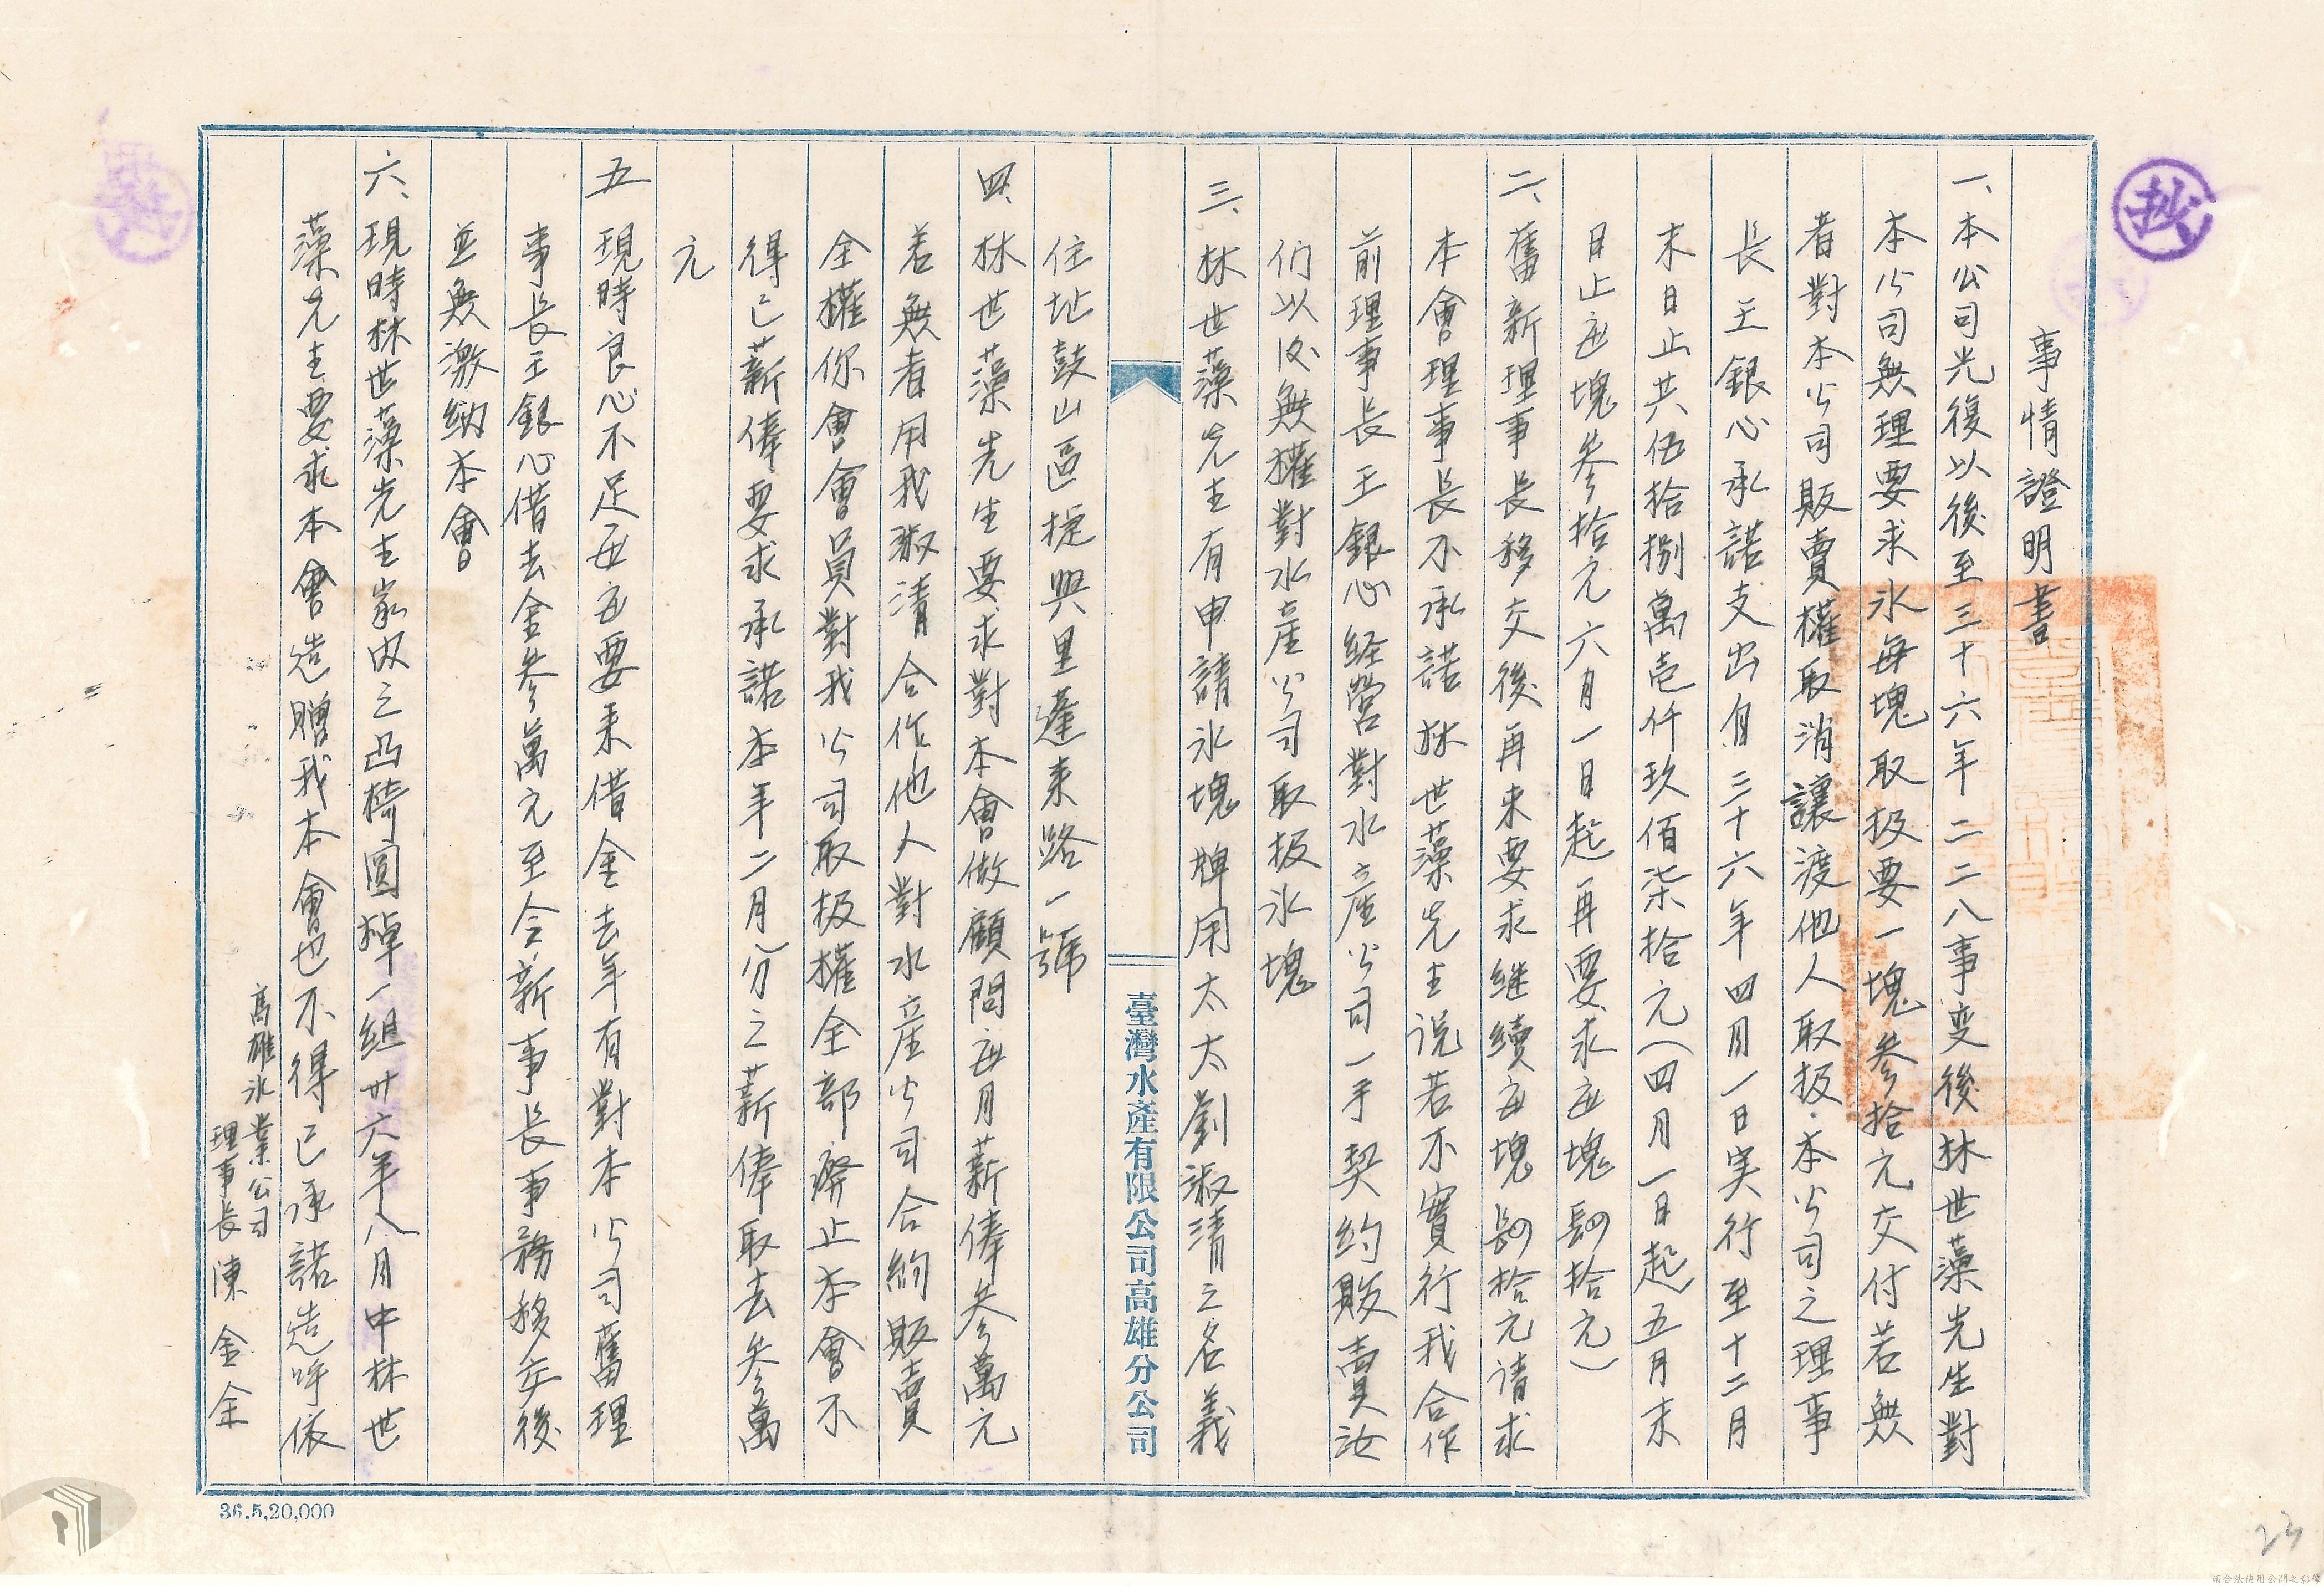 抄
事情證明書
一、本公司光復以後至三十六年二二八事变後林世藻先生對
本公司無理要求氷每塊取扱要一塊参拾元交付若無
者對本公司販賣權取消讓渡他人取扱.本公司之理事
長王銀心承諾支出自三十六年四月一日実行至十二月
末日止共伍拾捌萬壱仟玖佰柒拾元(四月一日起五月末
日止每塊参拾元六月一日起再要求每塊四拾元)
二、舊新理事長移交後再来要求継續每塊四拾元请求
本會理事長不承諾林世藻先生说若不實行我合作
前理事長王銀心経营對水產公司一手契约販賣汝
们以后無權對水產公司取扱氷塊
三、林世藻先生有申請氷塊牌用太太劉淑清之名義
臺灣水產有限公司高雄分公司
住址鼓山區捷興里蓬萊路一號
四、林世藻先生要求對本會做顧問每月薪俸参萬元
若無者用我淑清合作他人對水產公司合約販賣
全權你會會員對我公司取扱權全部廃止本會不
得已薪俸要求承諾本年二月分之薪俸取去参萬
元
五現時良心不足再在要来借金去年有對本公司舊理
事長王銀心借去金参萬元至今新事長事務移交後
並無激納本會
六、現時林世藻先生家内之凸椅圓棹一組卅六年八月中林世
藻先生要求本會造贈我本會也不得已承諾造呼依
高雄氷業公司
理事長陳金全
36,5,20,000
23
請合法使用公開之影像